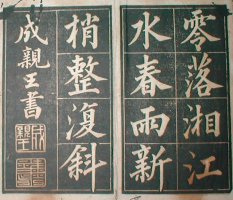 零落湘江
水春雨新
梢整復斜
成親王書